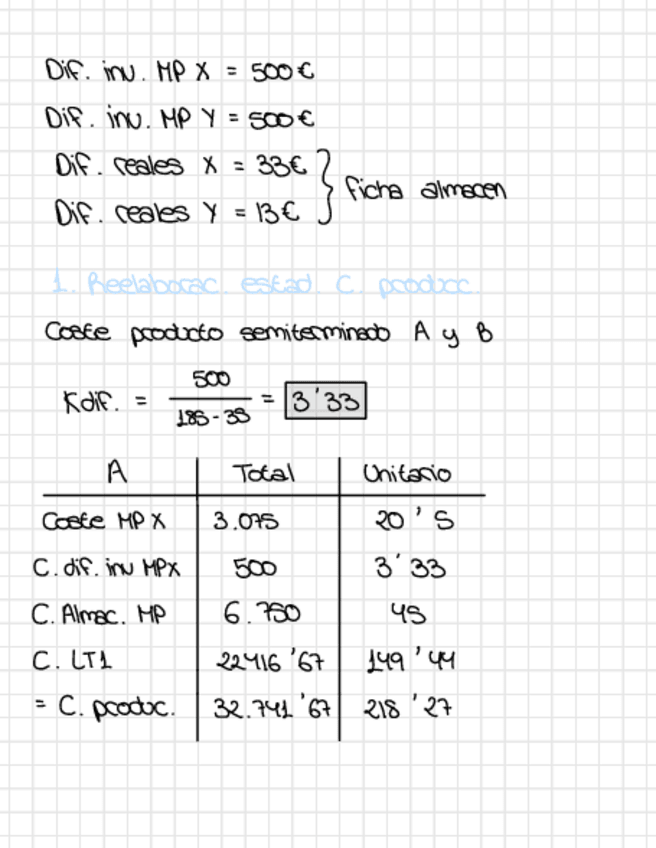 Dif. inv. MP X = 500€
Dif. inv. MP Y = 500€
Dif. reales X = 33€
Dif. reales Y = 13€
ficha almacen
1. Reelaborac. estad. C. producc.
Coste producto semiterminado A y B
Kdif. = 500 / 185-35 = 3'33
A Total Unitario
Coste MP X 3.075 20'5
C. dif. inv MPX 500 3'33
C. Almac. MP 6.750 45
C. LT1 22416'67 149'44
= C. produc. 32.741'67 218'27